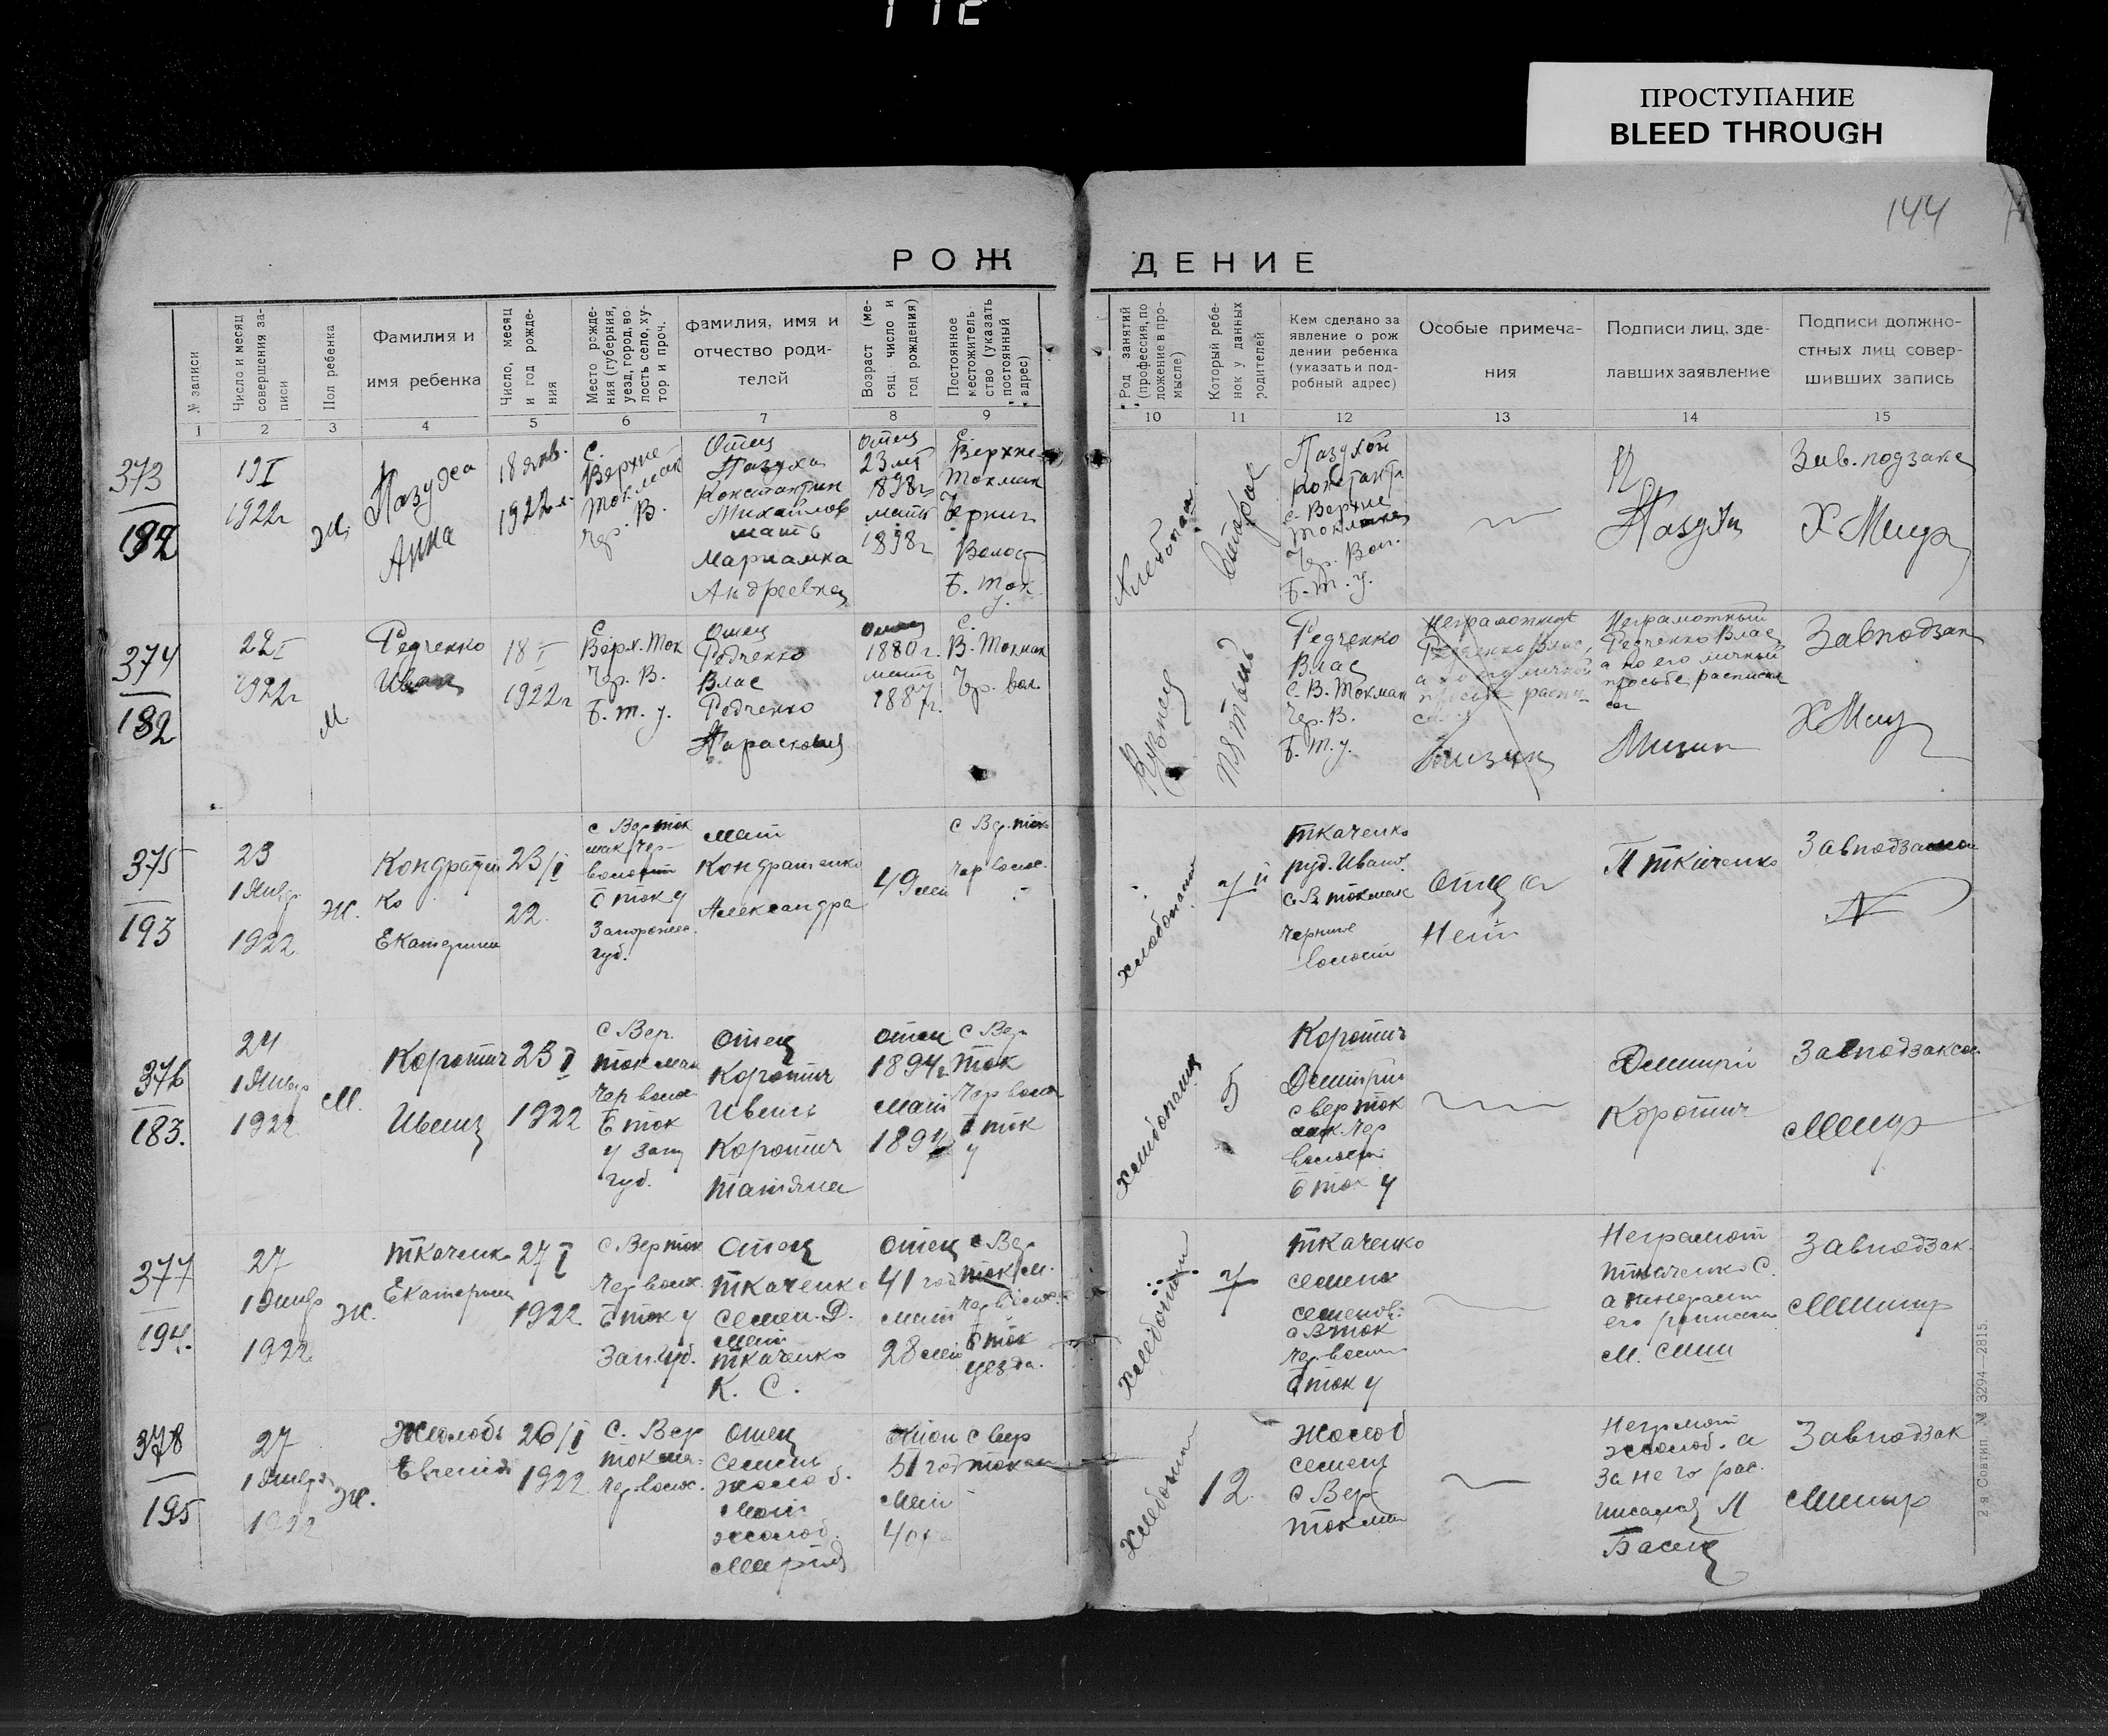 ПРОСТУПАНИЕ
BLEED THROUGH
144
РОЖДЕНИЕ
№ записи
Число и месяц совершения записи
Пол ребенка
Фамилия и имя ребенка
Число, месяц и год рождения
Место рождения (губерния, уезд, город, волость село, хутор и проч.
фамилия, имя и отчество родителей
Возраст (месяц число и год рождения)
Постоянное местожительство (указать постоянный адрес)
Род занятий (профессия, положение в промысле)
Который ребенок у данных родителей
Кем сделано заявление о рождении ребенка (указать и подробный адрес)
Особые примечания
Подписи лиц, зделавших заявление
Подписи должностных лиц совершивших запись
1 2 3 4 5 6 7 8 9 10 11 12 13 14 15
373
192
19 I
1922г
Ж
Пазуха
Анна
18 янв.
1922 г.
С.
Верхне-
Токмак
Чер. В.
Отец
Пазуха
Константин
Михайлов
мать
Марианна
Андреевна
Отец
23 лет
1898г
мать
1898г
С.
Верхне
Токмак
Черниг
Волост
Б. Ток
у.
Хлебопаш.
второе
Пазухой
Констант
с. Верхне
Токмак
Чер. Вол.
Б. Т. у.
Пазуха
Зав. подзакс
Х Мищ
374
182
22 I
1922г
М
Редченко
Иван
18 I
1922г
С.
Верх. Ток
Чер. В.
Б. Т. у.
Отец
Редченко
Влас
Редченко
Парасковия
Отец
1880 г.
мать
1887 г.
С.
В. Токмак
Чер. вол.
Кузнец
пятый
Редченко
Влас
С. В. Токмак
Чер. В.
Б. Т. у.
Неграмотный
Редченко Влас,
а по его личной
просьбе распи-
сался
Неграмотный
Редченко Влас
а по его личной
просьбе расписал
ся
Завподзак
Х Мищ
375
193
23
Январ
1922
Ж.
Кондратен
ко
Екатерина
23/I
22.
с Вер ток
мак Чер-
волости
Б ток у
Запорожс.
губ.
Мать
Кондратенко
Александра
49 лет
с Вер. ток
Чер волос.
хлебопаш
7 й
Ткаченко
руд. Иван.
с. В токмак
Черниг
волости
Отца
Нет
П Ткаченко
Завподзакса
376
183.
24
Январ
1922
М.
Коротич
Иван
23 I
1922
с Вер.
токмак
Чер волос
Б ток
у Зап
губ.
Отец
Коротич
Иван
Коротич
Татяна
Отец
1894г
Мать
189
с Вер
Ток
Чер волос
Б ток
у
хлебопашец
5
Коротич
Дмитрий
с Вер ток
мак. Чер
волости
Б ток у
Дмитрий
Коротич
Завподзакса
377
194.
27
Январ
1922
Ж.
Ткаченко
Екатерина
27 I
1922
с Вер ток
Чер волос.
Б ток у
Зап. губ.
Отец
Ткаченко
Семен. Д.
Мать
Ткаченко
К. С.
Отец
41 год
Мать
28 лет
с Вер
ток м.
Чер волос.
Б ток
уезда.
хлебопаш
7
Ткаченко
Семена
Семенов.
с В ток
Чер волости
Б ток у
Неграмот
Ткаченко С.
Завподзак.
378
195
27
Январ
1922
Ж.
Жолобъ
Евгения
26/I
1922
С. Вер
токма.
Чер волос.
Отец
Семенъ
Жолоб.
Мать
Жолоб.
Мария
51 год
Мать
40
с Вер
токмак
хлебопаш
12.
Жолоб
Семенъ
с Вер
токмак
Неграмот
Жолоб. а
За него рас.
писался Л
Завподзак
2-я Совтип. № 3294—2815.